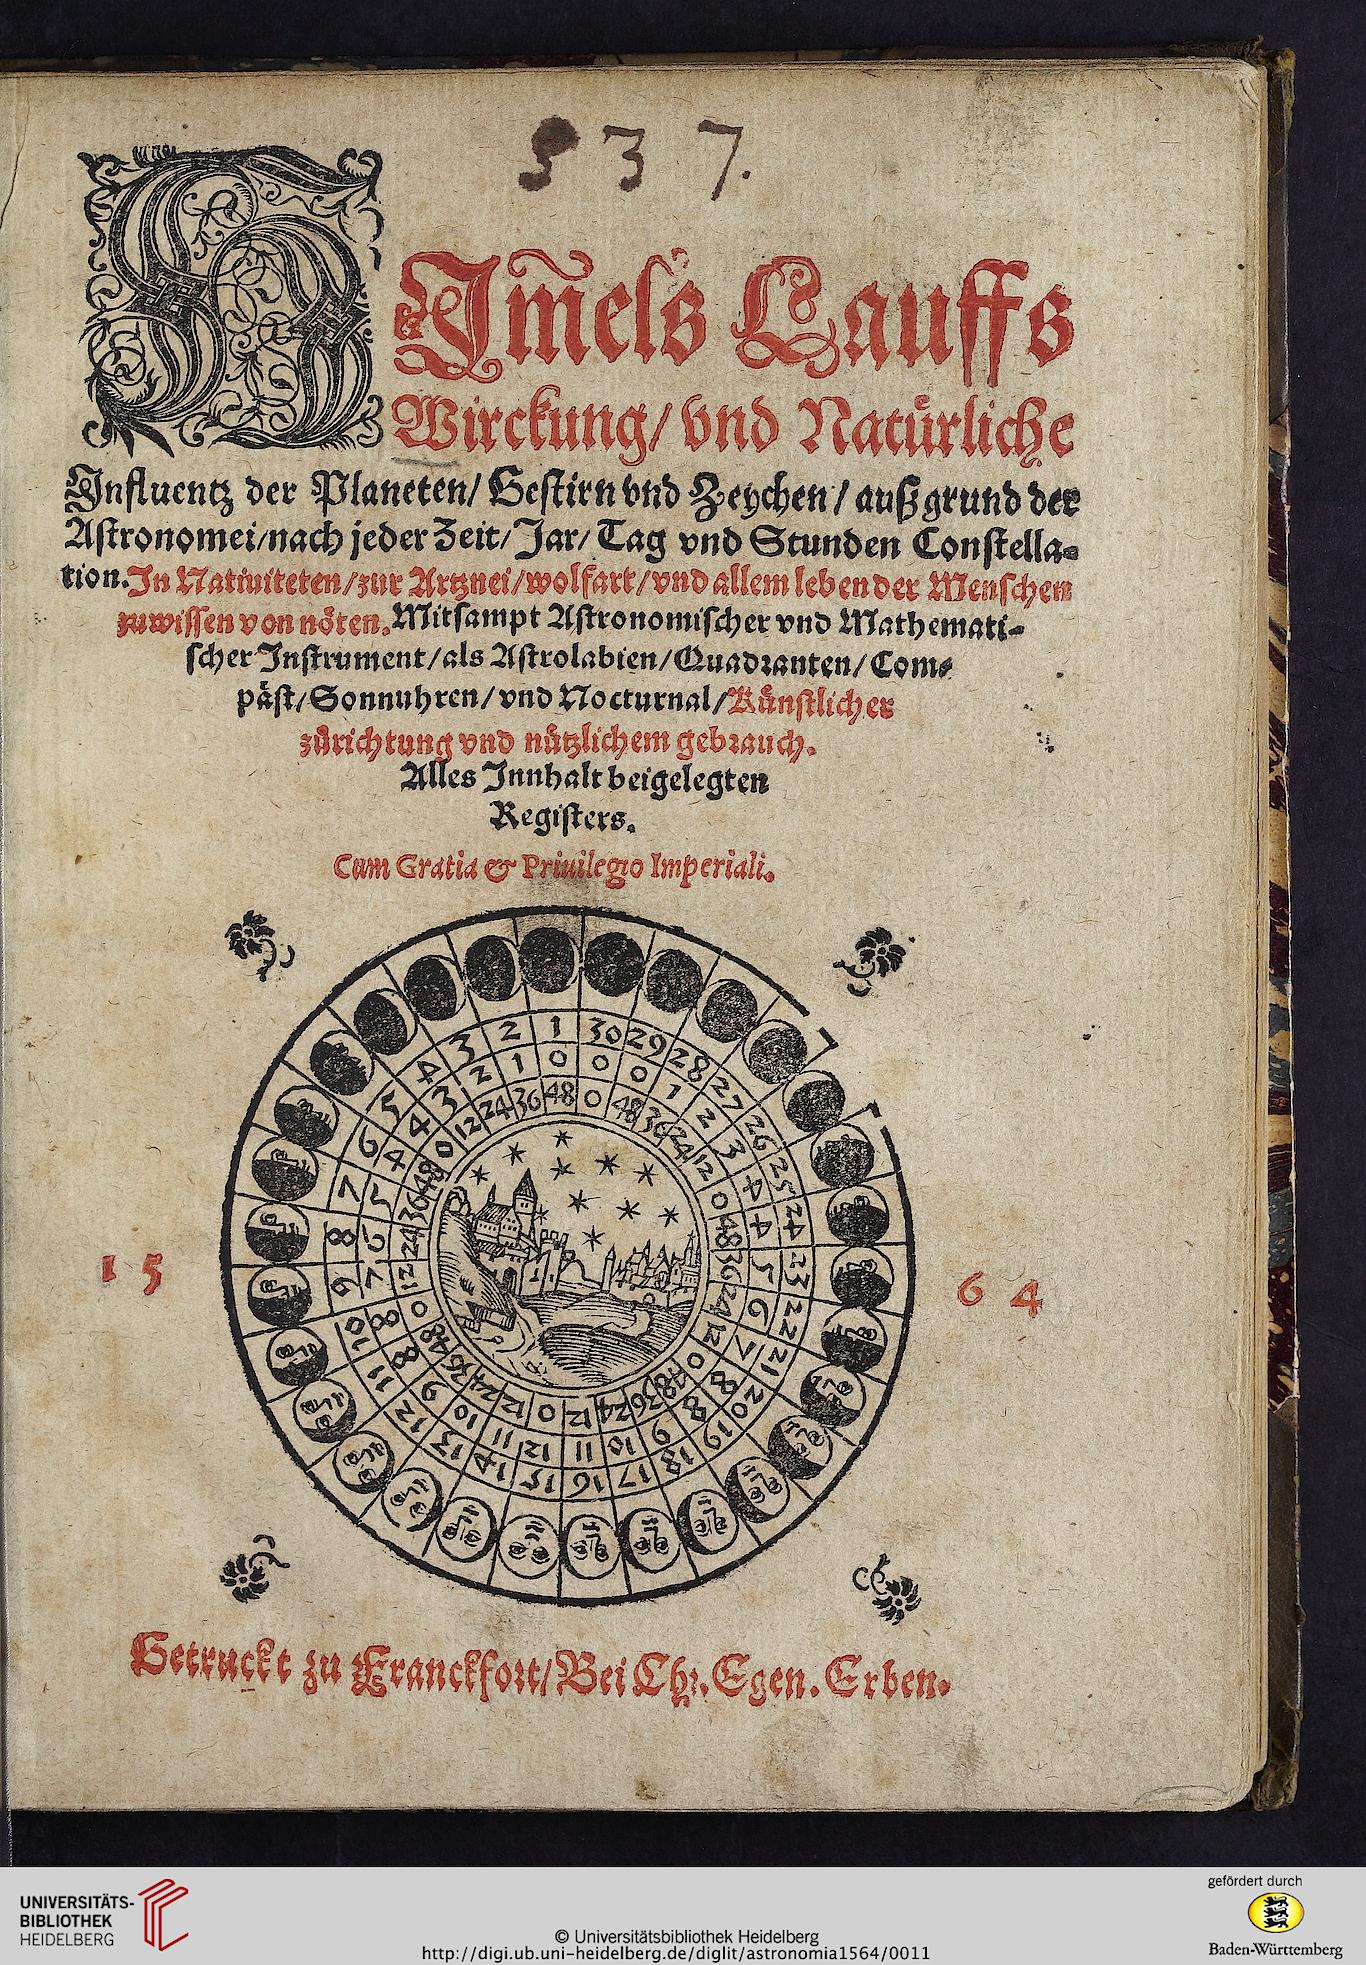 537.
HIm̃els Lauffs
Wirckung/ vnd Natürliche
Influentz der Planeten/ Gestirn vnd Zeychen/ auß grund der
Astronomei/nach jeder Zeit/ Jar/ Tag vnd Stunden Constella-
tion. In Natiuiteten/zur Artznei/wolfart/vnd allem leben der Menschen
zuwissen von nöten. Mitsampt Astronomischer vnd Mathemati-
scher Instrument/als Astrolabien/Quadranten/Com-
päst/Sonnuhren/vnd Nocturnal/Künstlicher
zůrichtung vnd nützlichem gebrauch.
Alles Innhalt beigelegten
Registers.
Cum Gratia & Priuilegio Imperiali.
1 2 3 4 5 6 7 8 9 10 11 12 13 14 15 16 17 18 19 20 21 22 23 24 25 26 27 28 29 30
0 1 2 3 4 4 5 6 7 8 8 9 10 11 12 11 10 9 8 8 7 6 5 4 4 3 2 1 0 0
48 36 24 12 0 48 36 24 12 0 48 36 24 12 0 12 24 36 48 0 12 24 36 48 0 12 24 36 48 0
15 64
Getruckt zu Franckfort/Bei Chr. Egen. Erben.
UNIVERSITÄTS-
BIBLIOTHEK
HEIDELBERG
© Universitätsbibliothek Heidelberg
http://digi.ub.uni-heidelberg.de/diglit/astronomia1564/0011
gefördert durch
Baden-Württemberg